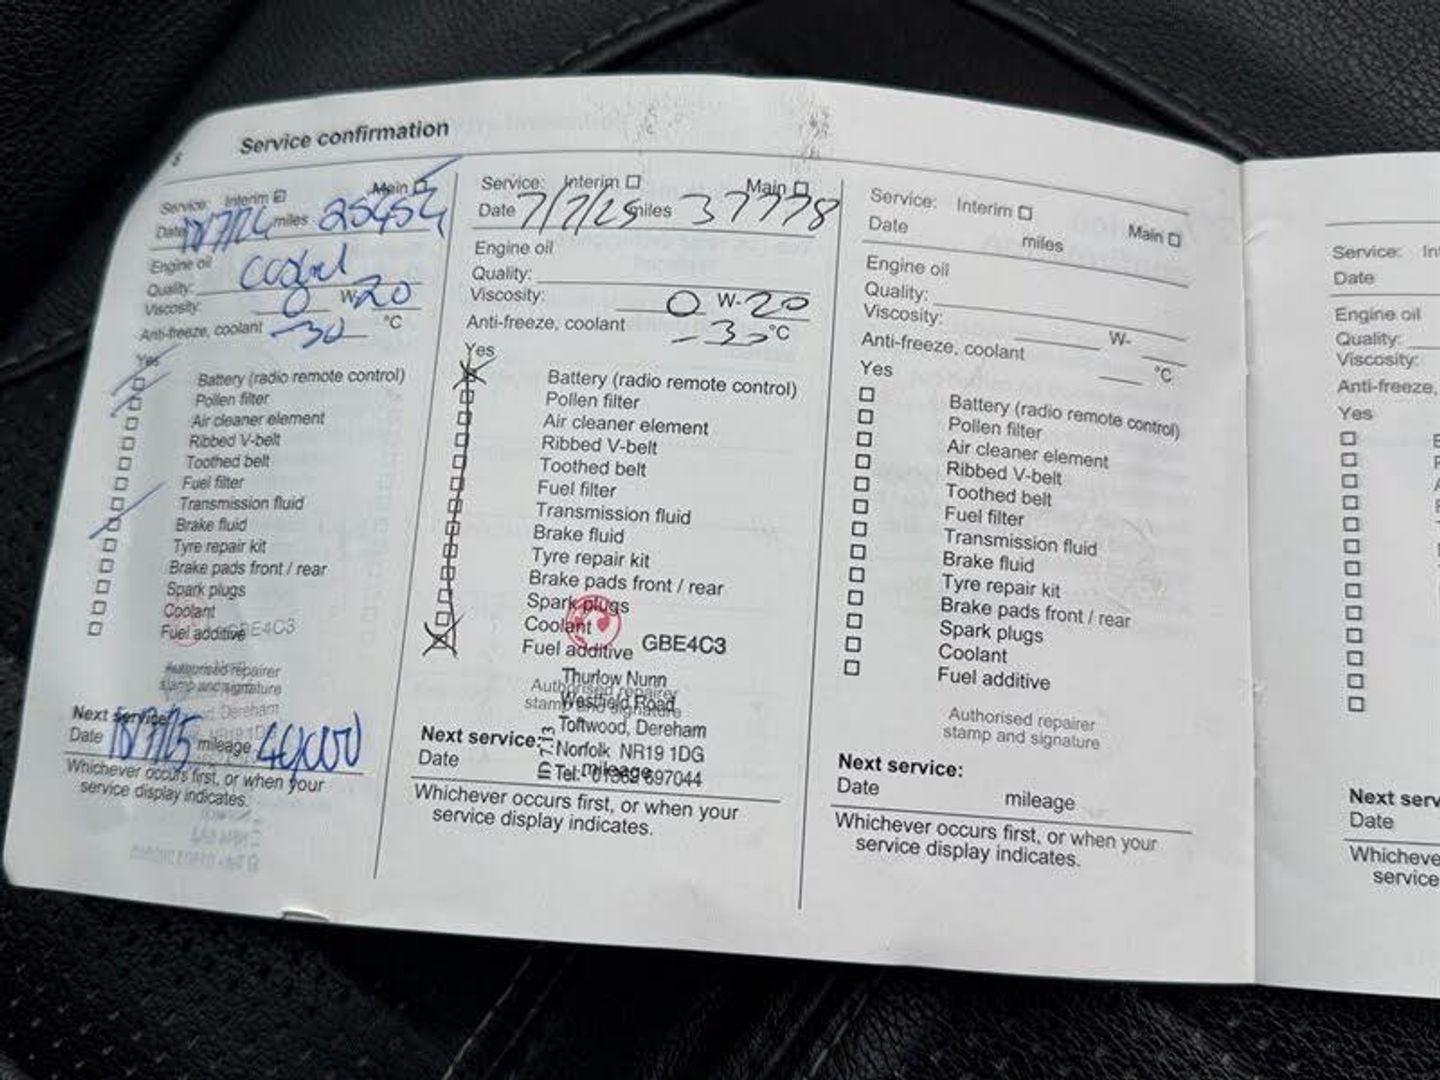 8 Service confirmation
Service: Interim Main
Date 18/7/24 miles 25454
Engine oil
Quality:
Viscosity: 0 W- 20
Anti-freeze, coolant -30 °C
Yes
Battery (radio remote control)
Pollen filter
Air cleaner element
Ribbed V-belt
Toothed belt
Fuel filter
Transmission fluid
Brake fluid
Tyre repair kit
Brake pads front / rear
Spark plugs
Coolant
Fuel additive GBE4C3
Authorised repairer
stamp and signature
Dereham
Next service:
Date 18/7/25 mileage 40,000
Whichever occurs first, or when your
service display indicates.
Service: Interim Main
Date 7/7/25 miles 37778
Engine oil
Quality:
Viscosity: 0 W- 20
Anti-freeze, coolant °C
Yes
Battery (radio remote control)
Pollen filter
Air cleaner element
Ribbed V-belt
Toothed belt
Fuel filter
Transmission fluid
Brake fluid
Tyre repair kit
Brake pads front / rear
Spark plugs
Coolant
Fuel additive GBE4C3
Thurlow Nunn
Authorised repairer
Westfield Road
stamp and signature
Toftwood, Dereham
Next service:
Norfolk NR19 1DG
Date mileage
Tel: 697044
Whichever occurs first, or when your
service display indicates.
Service: Interim Main
Date miles
Engine oil
Quality:
Viscosity: W-
Anti-freeze, coolant °C
Yes
Battery (radio remote control)
Pollen filter
Air cleaner element
Ribbed V-belt
Toothed belt
Fuel filter
Transmission fluid
Brake fluid
Tyre repair kit
Brake pads front / rear
Spark plugs
Coolant
Fuel additive
Authorised repairer
stamp and signature
Next service:
Date mileage
Whichever occurs first, or when your
service display indicates.
Service: In
Date
Engine oil
Quality:
Viscosity:
Anti-freeze,
Yes
Next serv
Date
Whicheve
service